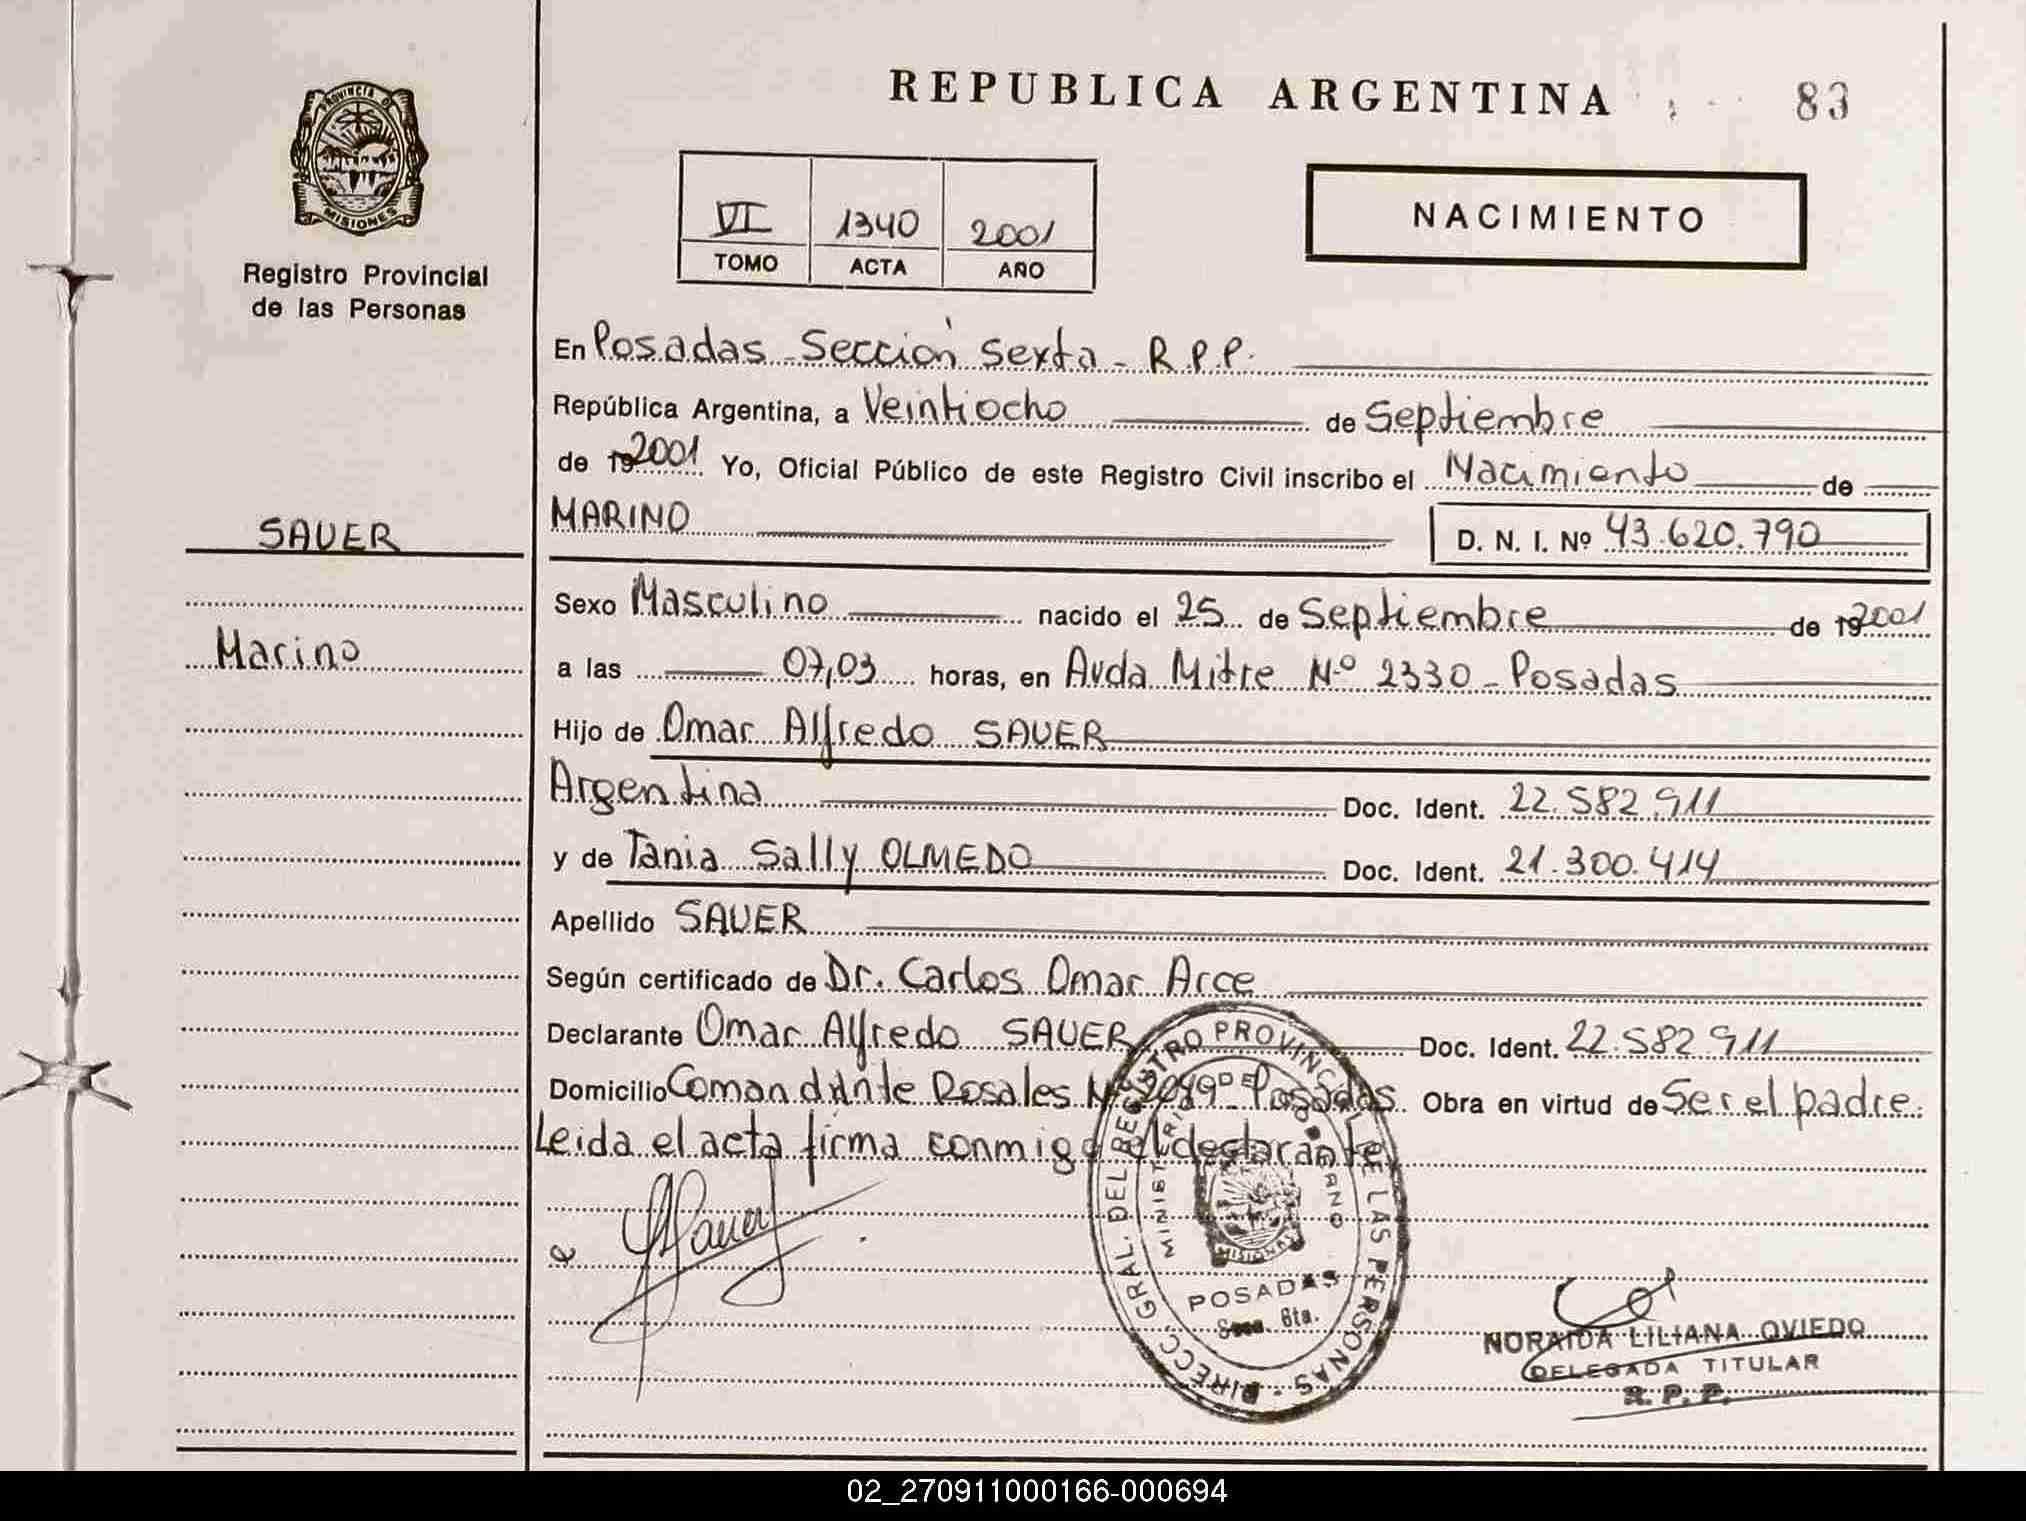 REPUBLICA ARGENTINA
83
PROVINCIA D
MISIONES
Registro Provincial
de las Personas
VI 1340 2001
TOMO ACTA AÑO
NACIMIENTO
En Posadas - Sección Sexta - R.P.P.
República Argentina, a Veintiocho de Septiembre
de 192001 Yo, Oficial Público de este Registro Civil inscribo el Nacimiento de
MARINO D. N. I. Nº 43.620.790
SAUER
Marino
Sexo Masculino nacido el 25 de Septiembre de 192001
a las 07,03 horas, en Avda Mitre Nº 2330 - Posadas
Hijo de Omar Alfredo SAUER
Argentina Doc. Ident. 22.582.911
y de Tania Sally OLMEDO Doc. Ident. 21.300.414
Apellido SAUER
Según certificado de Dr. Carlos Omar Arce
Declarante Omar Alfredo SAUER Doc. Ident. 22.582.911
Domicilio Comandante Rosales Nº Posadas Obra en virtud de Ser el padre.
Leida el acta firma conmigo el declarante
DIRECC. GRAL. DEL REGISTRO PROVINCIAL DE LAS PERSONAS
MISIONES
POSADAS
6ta.
NORAIDA LILIANA OVIEDO
DELEGADA TITULAR
R. P. P.
02_270911000166-000694